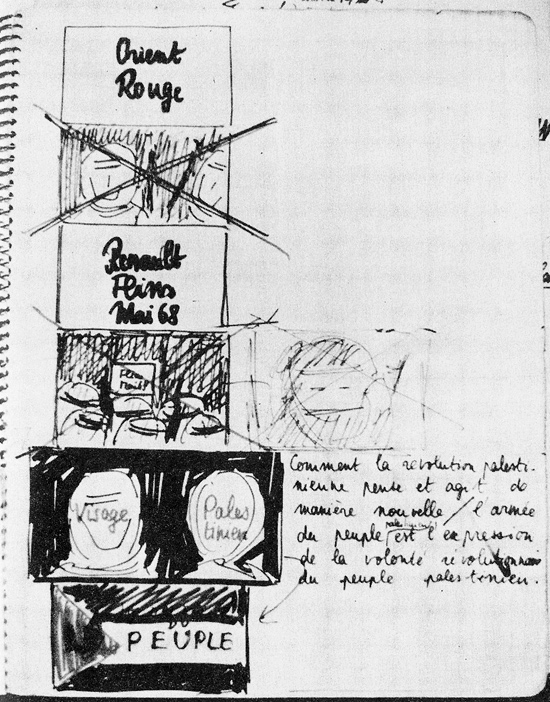 Orient
Rouge
Renault
Flins
Mai 68
Visage
Pales
tinien
Comment la révolution palesti-
nienne pense et agit de
manière nouvelle / l'armée
du peuple est l'expression
de la volonté révolutionnaire
du peuple palestinien.
DU
PEUPLE